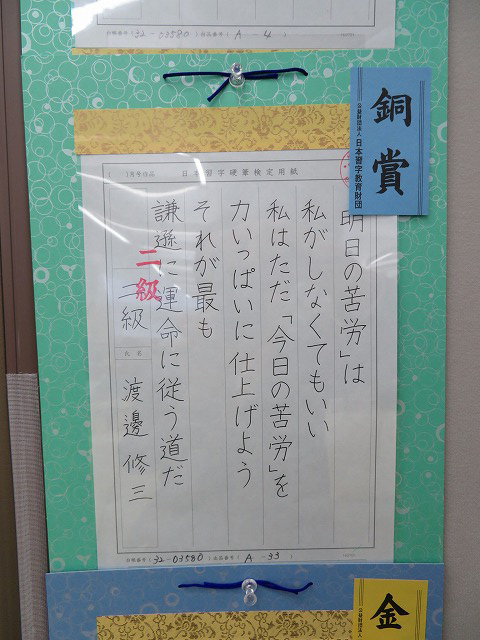 台帳番号(32-03580)(出品番号 A-4)
銅賞
公益財団法人 日本習字教育財団
1月号作品 日本習字硬筆検定用紙
明日の苦労」は
私がしなくてもいい
私はただ「今日の苦労」を
力いっぱいに仕上げよう
それが最も
謙遜に運命に従う道だ
二級
二級
氏名
渡邊修三
台帳番号(32-03580)(出品番号 A-33)
金
公益財団法人